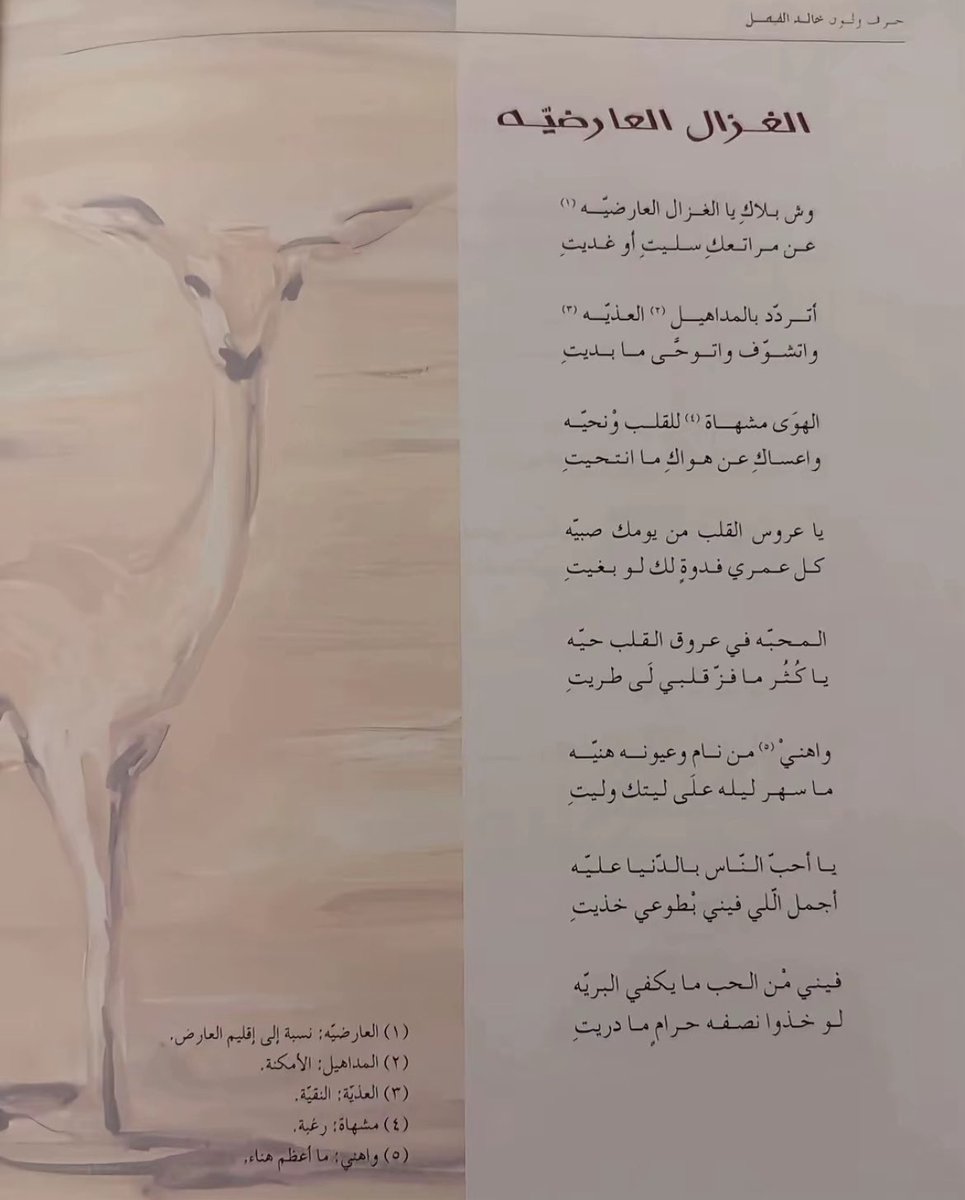 حرف ولون خالد الفيصل
الغزال العارضيّه
وش بلاكِ يا الغزال العارضيّه (١)
عن مراتعكِ سليتِ أو غديتِ
أتردّد بالمداهيل (٢) العذيّه (٣)
واتشوّف واتوحَّى ما بديتِ
الهوَى مشهاة (٤) للقلب وْنحيّه
واعساكِ عن هواكِ ما انتحيتِ
يا عروس القلب من يومك صبيّه
كل عمري فدوةٍ لك لو بغيتِ
المحبّه في عروق القلب حيّه
يا كُثُر ما فزّ قلبي لَى طريتِ
واهنيْ (٥) من نام وعيونه هنيّه
ما سهر ليله علَى ليتك وليتِ
يا أحبّ النّاس بالدّنيا عليّه
أجمل الّلي فيني بْطوعي خذيتِ
فيني مْن الحب ما يكفي البريّه
لو خذوا نصفه حرامٍ ما دريتِ
(١) العارضيّه: نسبة إلى إقليم العارض.
(٢) المداهيل: الأمكنة.
(٣) العذيّة: النقيّة.
(٤) مشهاة: رغبة.
(٥) واهني: ما أعظم هناء.